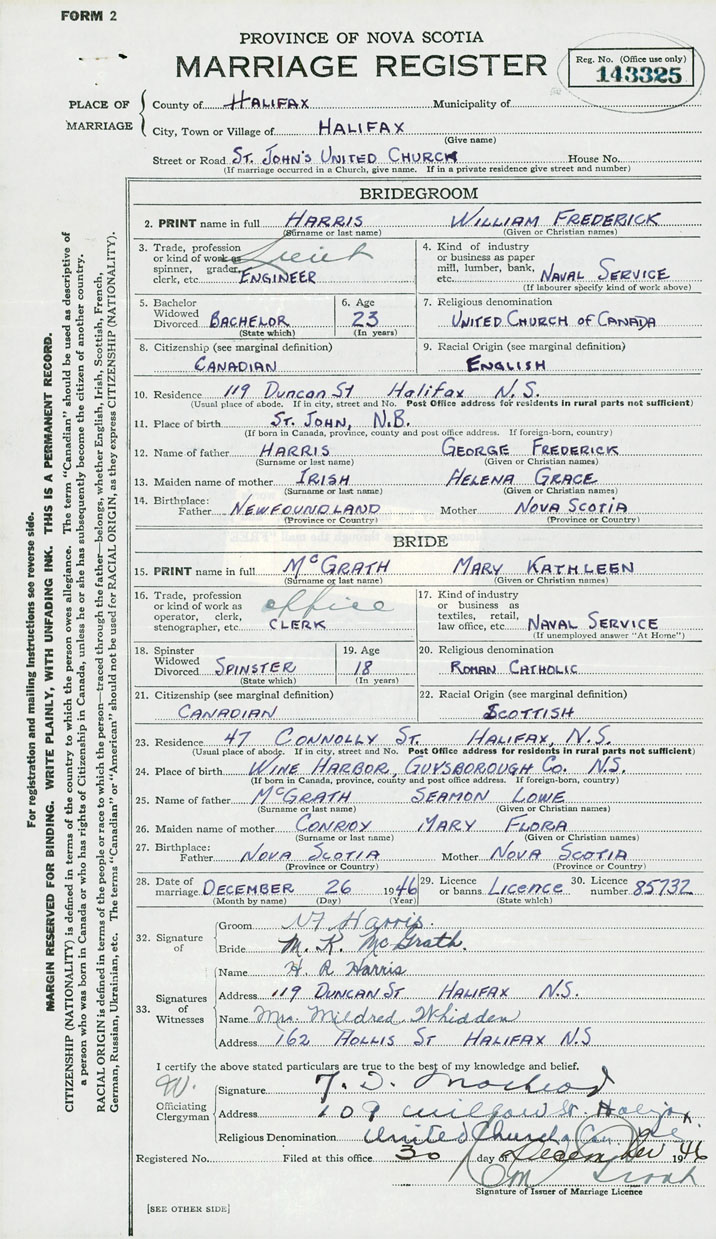 FORM 2
PROVINCE OF NOVA SCOTIA
MARRIAGE REGISTER
Reg. No. (Office use only)
143325
PLACE OF MARRIAGE
County of HALIFAX Municipality of
City, Town or Village of HALIFAX
(Give name)
Street or Road ST. JOHN'S UNITED CHURCH House No.
(If marriage occurred in a Church, give name. If in a private residence give street and number)
BRIDEGROOM
2. PRINT name in full HARRIS WILLIAM FREDERICK
(Surname or last name) (Given or Christian names)
3. Trade, profession or kind of work as spinner, grader, clerk, etc. Lieut ENGINEER
4. Kind of industry or business as paper mill, lumber, bank, etc. NAVAL SERVICE
(If labourer specify kind of work above)
5. Bachelor Widowed Divorced BACHELOR
(State which)
6. Age 23
(In years)
7. Religious denomination
UNITED CHURCH OF CANADA
8. Citizenship (see marginal definition)
CANADIAN
9. Racial Origin (see marginal definition)
ENGLISH
10. Residence 119 Duncan St Halifax N.S.
(Usual place of abode. If in city, street and No. Post Office address for residents in rural parts not sufficient)
11. Place of birth ST. JOHN, N.B.
(If born in Canada, province, county and post office address. If foreign-born, country)
12. Name of father HARRIS GEORGE FREDERICK
(Surname or last name) (Given or Christian names)
13. Maiden name of mother IRISH HELENA GRACE
(Surname or last name) (Given or Christian names)
14. Birthplace: Father NEWFOUNDLAND Mother NOVA SCOTIA
(Province or Country) (Province or Country)
BRIDE
15. PRINT name in full McGRATH MARY KATHLEEN
(Surname or last name) (Given or Christian names)
16. Trade, profession or kind of work as operator, clerk, stenographer, etc. office CLERK
17. Kind of industry or business as textiles, retail, law office, etc. NAVAL SERVICE
(If unemployed answer "At Home")
18. Spinster Widowed Divorced SPINSTER
(State which)
19. Age 18
(In years)
20. Religious denomination
ROMAN CATHOLIC
21. Citizenship (see marginal definition)
CANADIAN
22. Racial Origin (see marginal definition)
SCOTTISH
23. Residence 47 CONNOLLY ST. HALIFAX, N.S.
(Usual place of abode. If in city, street and No. Post Office address for residents in rural parts not sufficient)
24. Place of birth WINE HARBOR, GUYSBOROUGH CO. N.S.
(If born in Canada, province, county and post office address. If foreign-born, country)
25. Name of father McGRATH SEAMON LOWE
(Surname or last name) (Given or Christian names)
26. Maiden name of mother CONROY MARY FLORA
(Surname or last name) (Given or Christian names)
27. Birthplace: Father NOVA SCOTIA Mother NOVA SCOTIA
(Province or Country) (Province or Country)
28. Date of marriage DECEMBER 26 1946 29. Licence or banns Licence 30. Licence number 85732
(Month by name) (Day) (Year) (State which)
32. Signature of
Groom W F Harris.
Bride M. K. McGrath.
33. Signatures of Witnesses
Name H R Harris
Address 119 DUNCAN ST HALIFAX N.S.
Name Mrs. Mildred Whidden
Address 162 HOLLIS ST HALIFAX N.S
I certify the above stated particulars are true to the best of my knowledge and belief.
W.
Officiating Clergyman
Signature
Address 109 St. Halifax
Religious Denomination United Church of Can
Registered No. Filed at this office 30 day of December 1946
Signature of Issuer of Marriage Licence
[SEE OTHER SIDE]
For registration and mailing instructions see reverse side.
MARGIN RESERVED FOR BINDING. WRITE PLAINLY, WITH UNFADING INK. THIS IS A PERMANENT RECORD.
CITIZENSHIP (NATIONALITY) is defined in terms of the country to which the person owes allegiance. The term "Canadian" should be used as descriptive of
a person who was born in Canada or who has rights of Citizenship in Canada, unless he or she has subsequently become the citizen of another country.
RACIAL ORIGIN is defined in terms of the people or race to which the person—traced through the father—belongs, whether English, Irish, Scottish, French,
German, Russian, Ukrainian, etc. The terms "Canadian" or "American" should not be used for RACIAL ORIGIN, as they express CITIZENSHIP (NATIONALITY).